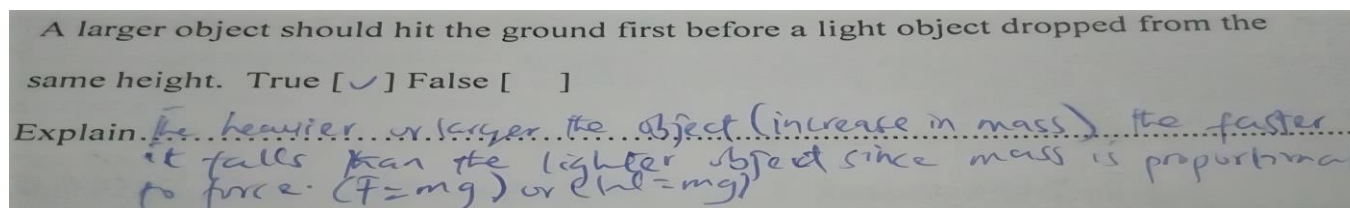 A larger object should hit the ground first before a light object dropped from the
same height. True [✓] False [ ]
Explain. The heavier or larger the object (increase in mass) the faster
it falls than the lighter object since mass is proportiona
to force. (F=mg) or (W=mg)